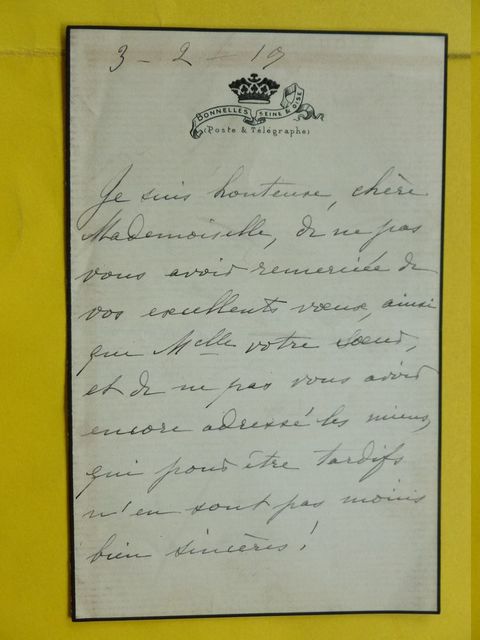 3 - 2 - 19
BONNELLES SEINE & OISE
(Poste & Télégraphe)
Je suis honteuse, chère
Mademoiselle, de ne pas
vous avoir remerciée de
vos excellents vœux, ainsi
que Melle votre sœur,
et de ne pas vous avoir
encore adressé les miens,
qui pour être tardifs
n'en sont pas moins
bien sincères !